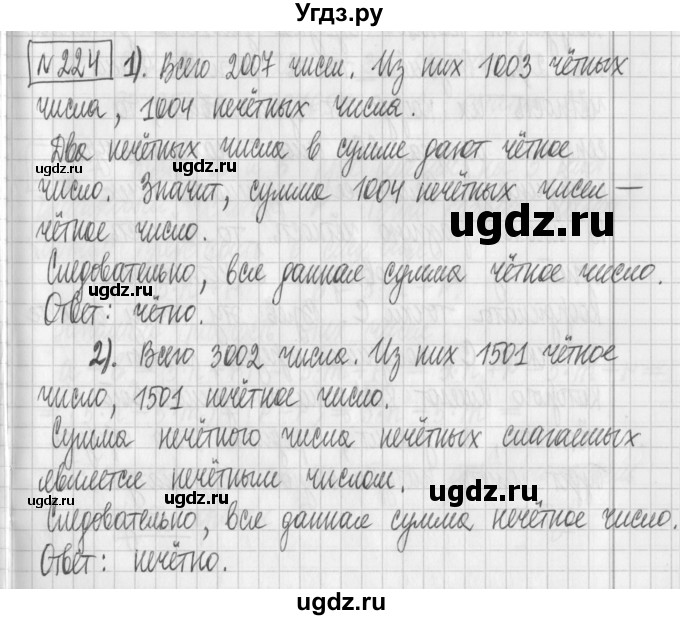 Угдз.ру
№224 1). Всего 2007 чисел. Из них 1003 чётных
числа, 1004 нечётных числа.
Два нечётных числа в сумме дают чётное
ugdz.ru ugdz.ru
число. Значит, сумма 1004 нечётных чисел —
ugdz.ru
чётное число.
Следовательно, вся данная сумма чётное число.
ugdz.ru
Ответ: чётно.
2). Всего 3002 числа. Из них 1501 чётное
ugdz.ru
число, 1501 нечётное число.
Сумма нечётного числа нечётных слагаемых
является нечётным числом.
ugdz.ru ugdz.ru ugdz.ru
Следовательно, вся данная сумма нечётное число.
ugdz.ru
Ответ: нечётно.
ugdz.ru